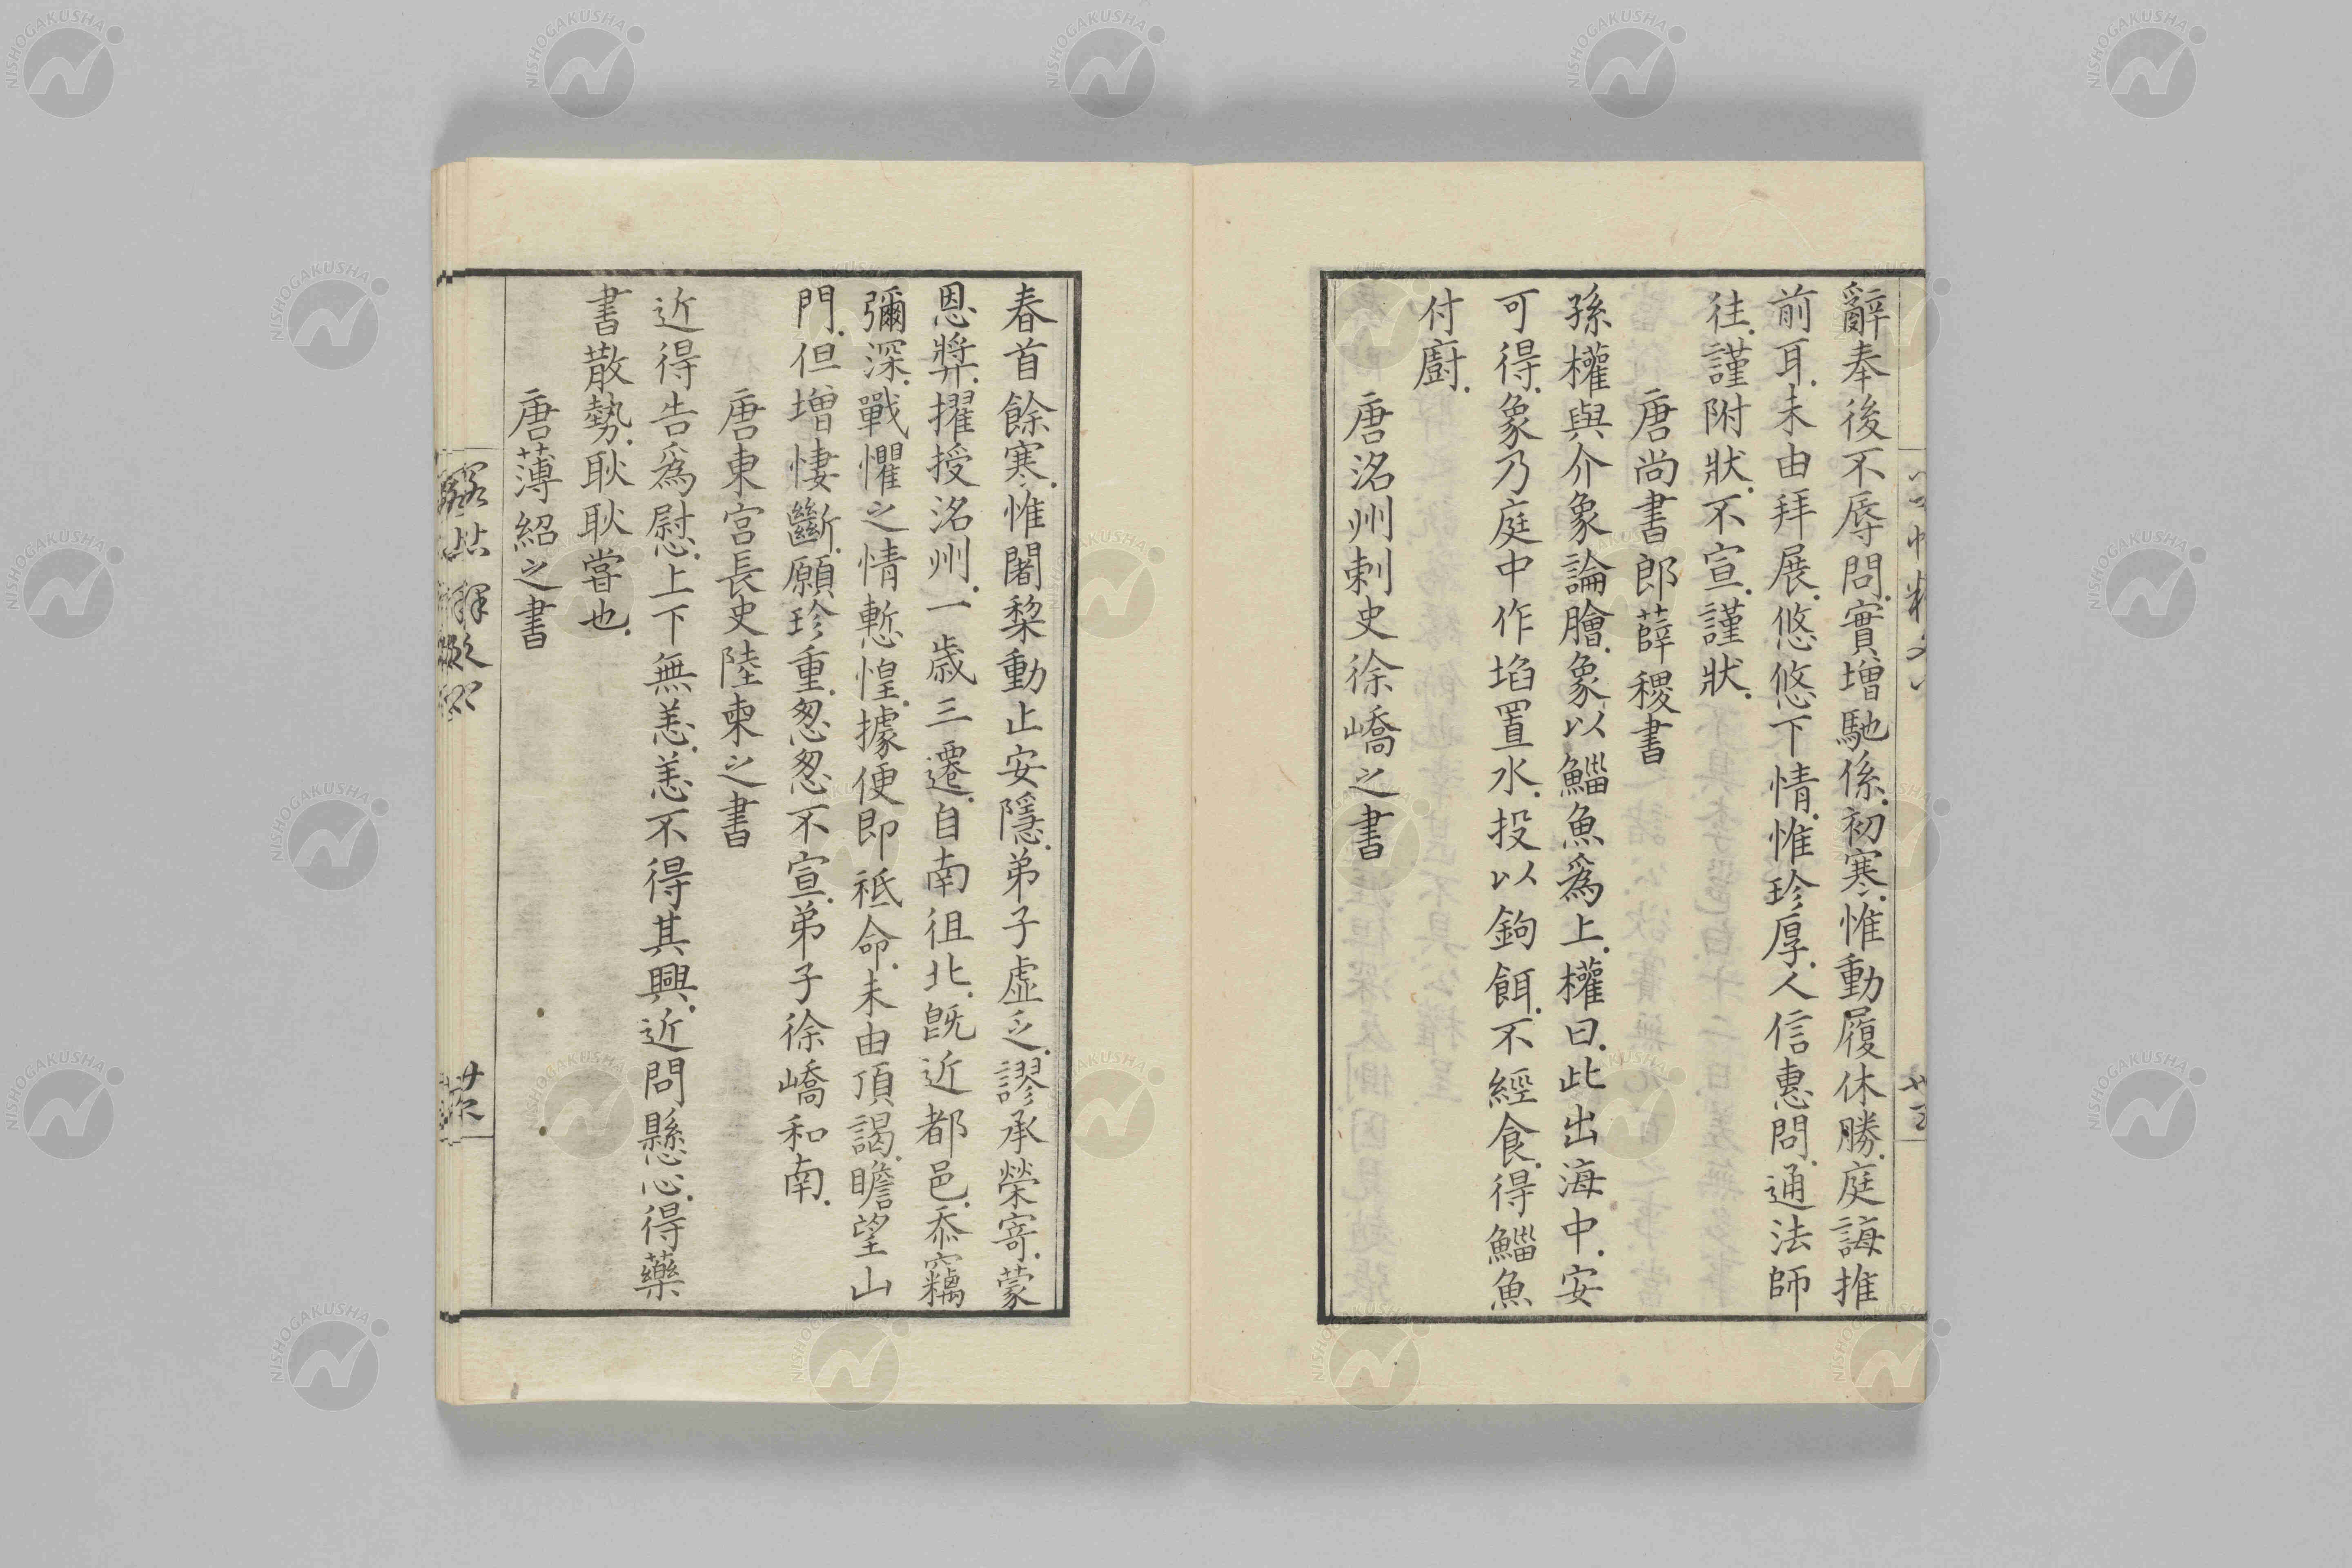 辭奉後不辱問.實增馳係.初寒.惟動履休勝.庭誨推
前耳.未由拜展.悠悠下情.惟珍厚.人信惠問.通法師
往.謹附狀.不宣.謹狀.
唐尚書郎薛稷書
孫權與介象論膾.象以鯔魚爲上.權曰.此出海中.安
可得.象乃庭中作埳置水.投以鉤餌.不經食.得鯔魚
付廚.
唐洺州刺史徐嶠之書
春首餘寒.惟闍棃動止安隱.弟子虛乏.謬承榮寄.蒙
恩奬.擢授洺州.一歲三遷.自南徂北.旣近都邑.忝竊
彌深.戰懼之情慙惶.據便即祗命.未由頂謁.瞻望山
門.但增悽斷.願珍重.怱怱不宣.弟子徐嶠和南.
唐東宮長史陸柬之書
近得告爲慰.上下無恙.恙不得其興.近問懸心.得藥
書散勢.耿耿甞也.
唐薄紹之書
NISHOGAKUSHA